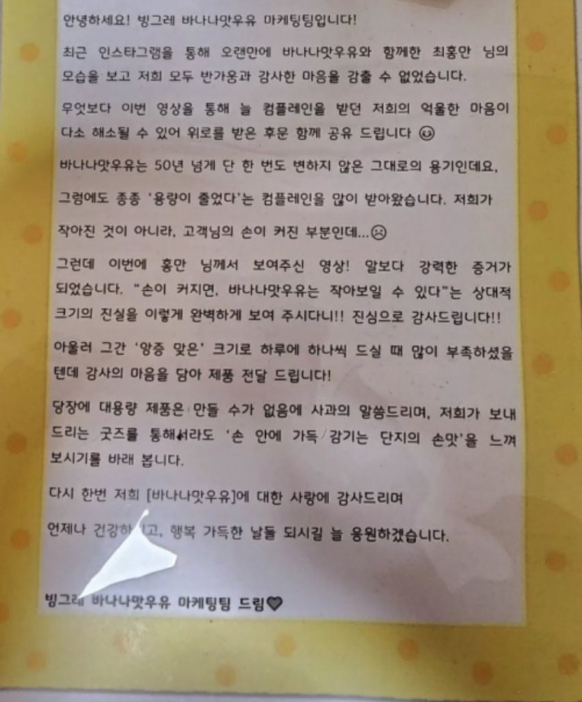 안녕하세요! 빙그레 바나나맛우유 마케팅팀입니다!
최근 인스타그램을 통해 오랜만에 바나나맛우유와 함께한 최홍만 님의
모습을 보고 저희 모두 반가움과 감사한 마음을 감출 수 없었습니다.
무엇보다 이번 영상을 통해 늘 컴플레인을 받던 저희의 억울한 마음이
다소 해소될 수 있어 위로를 받은 후문 함께 공유 드립니다 ☺
바나나맛우유는 50년 넘게 단 한 번도 변하지 않은 그대로의 용기인데요,
그럼에도 종종 ‘용량이 줄었다’는 컴플레인을 많이 받아왔습니다. 저희가
작아진 것이 아니라, 고객님의 손이 커진 부분인데...☹
그런데 이번에 홍만 님께서 보여주신 영상! 말보다 강력한 증거가
되었습니다. “손이 커지면, 바나나맛우유는 작아보일 수 있다”는 상대적
크기의 진실을 이렇게 완벽하게 보여 주시다니!! 진심으로 감사드립니다!!
아울러 그간 ‘앙증 맞은’ 크기로 하루에 하나씩 드실 때 많이 부족하셨을
텐데 감사의 마음을 담아 제품 전달 드립니다!
당장에 대용량 제품은 만들 수가 없음에 사과의 말씀드리며, 저희가 보내
드리는 굿즈를 통해서라도 ‘손 안에 가득 감기는 단지의 손맛’을 느껴
보시기를 바래 봅니다.
다시 한번 저희 [바나나맛우유]에 대한 사랑에 감사드리며
언제나 건강하시고, 행복 가득한 날들 되시길 늘 응원하겠습니다.
빙그레 바나나맛우유 마케팅팀 드림♥